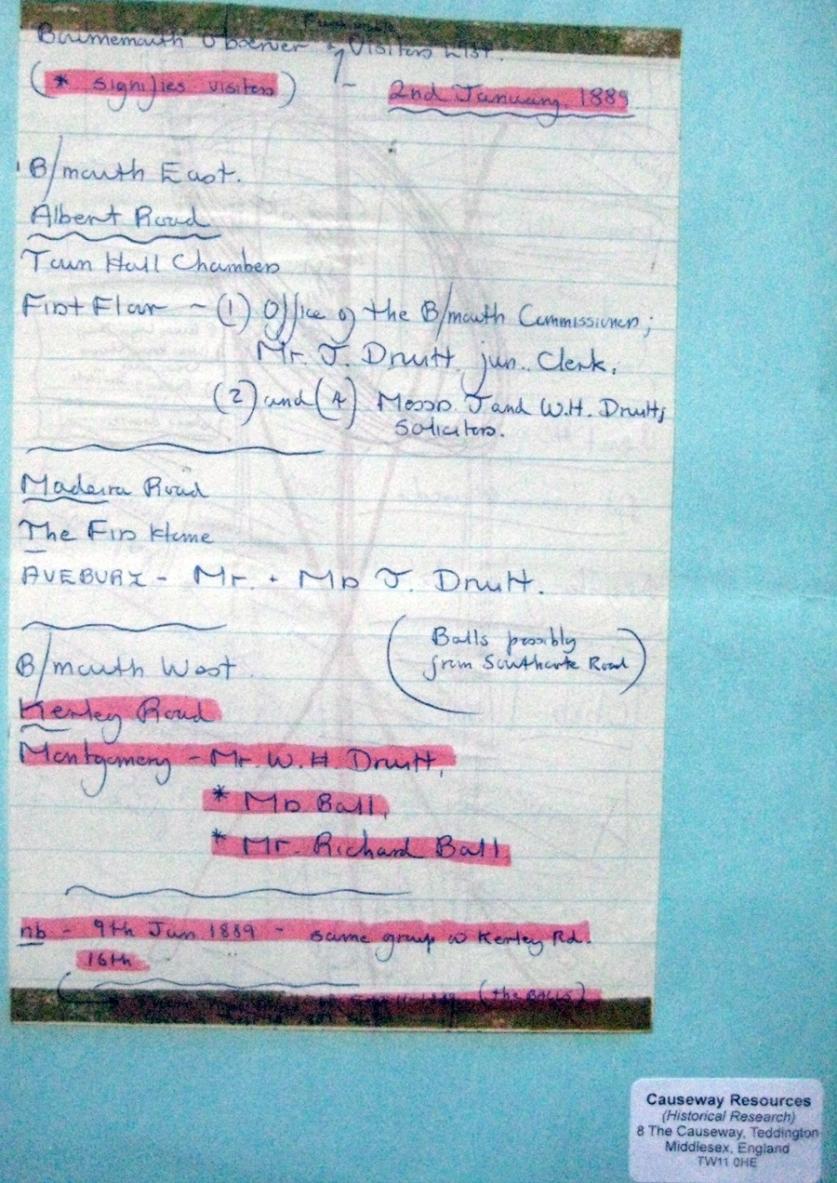 Bournemouth Observer & Visitors List.
(* signifies visitors) - 2nd January, 1889
B/mouth East.
Albert Road
Town Hall Chambers
First Floor - (1) Office of the B/mouth Commissioners;
Mr. J. Druitt, jun. Clerk;
(2) and (4) Messrs J and W.H. Druitt,
Solicitors.
Madeira Road
The Firs Home
AVEBURY - Mr. + Mrs J. Druitt.
(Balls possibly
from Southcote Road)
B/mouth West.
Kerley Road
Montgomery - Mr. W.H Druitt,
* Mrs Ball,
* Mr. Richard Ball,
nb - 9th Jan 1889 - same group @ Kerley Rd.
16th
(the BALLS)
Causeway Resources
(Historical Research)
8 The Causeway, Teddington
Middlesex, England
TW11 0HE